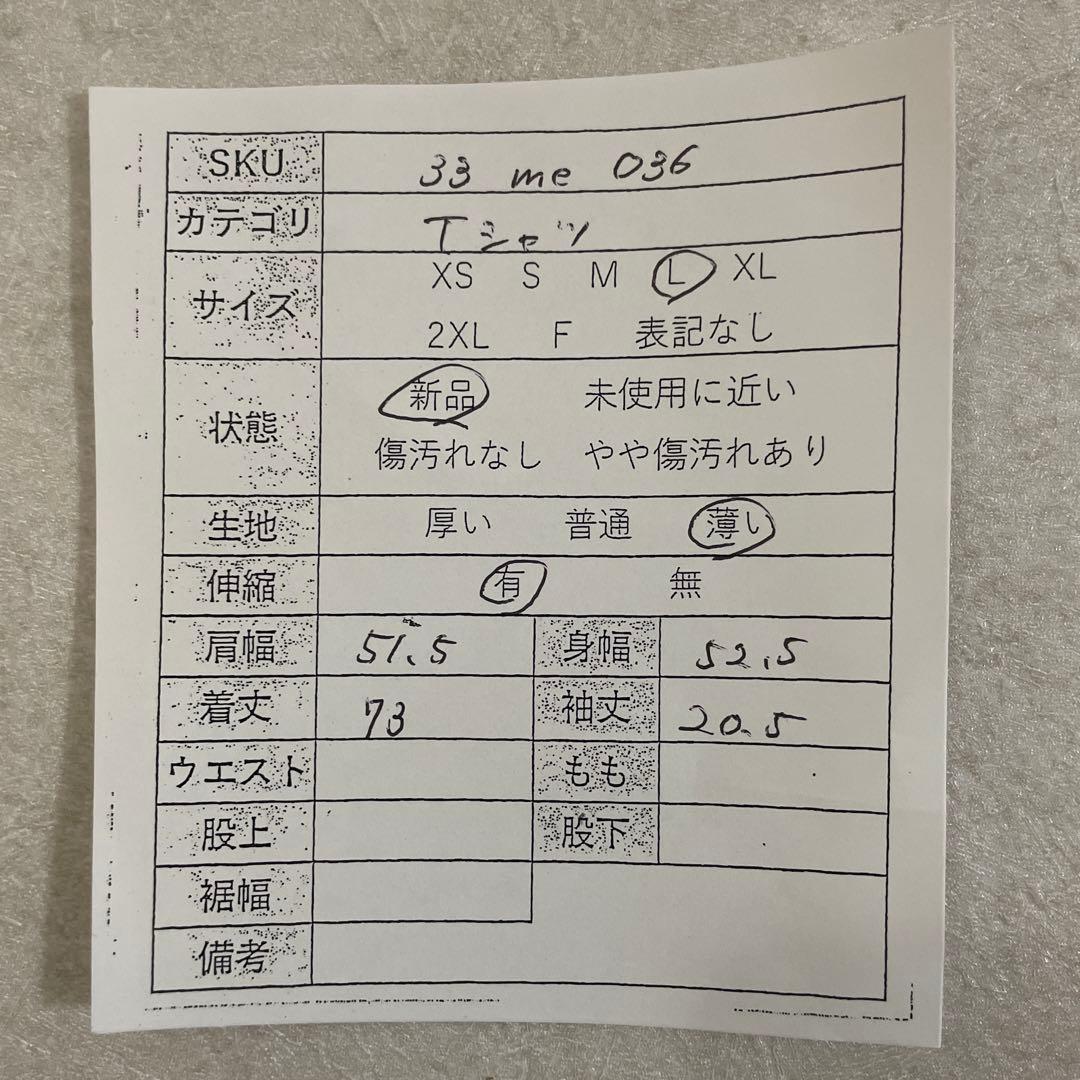 SKU 33 me 036
カテゴリ Tシャツ
サイズ XS S M L XL
2XL F 表記なし
状態 新品 未使用に近い
傷汚れなし やや傷汚れあり
生地 厚い 普通 薄い
伸縮 有 無
肩幅 51.5 身幅 52.5
着丈 73 袖丈 20.5
ウエスト もも
股上 股下
裾幅
備考